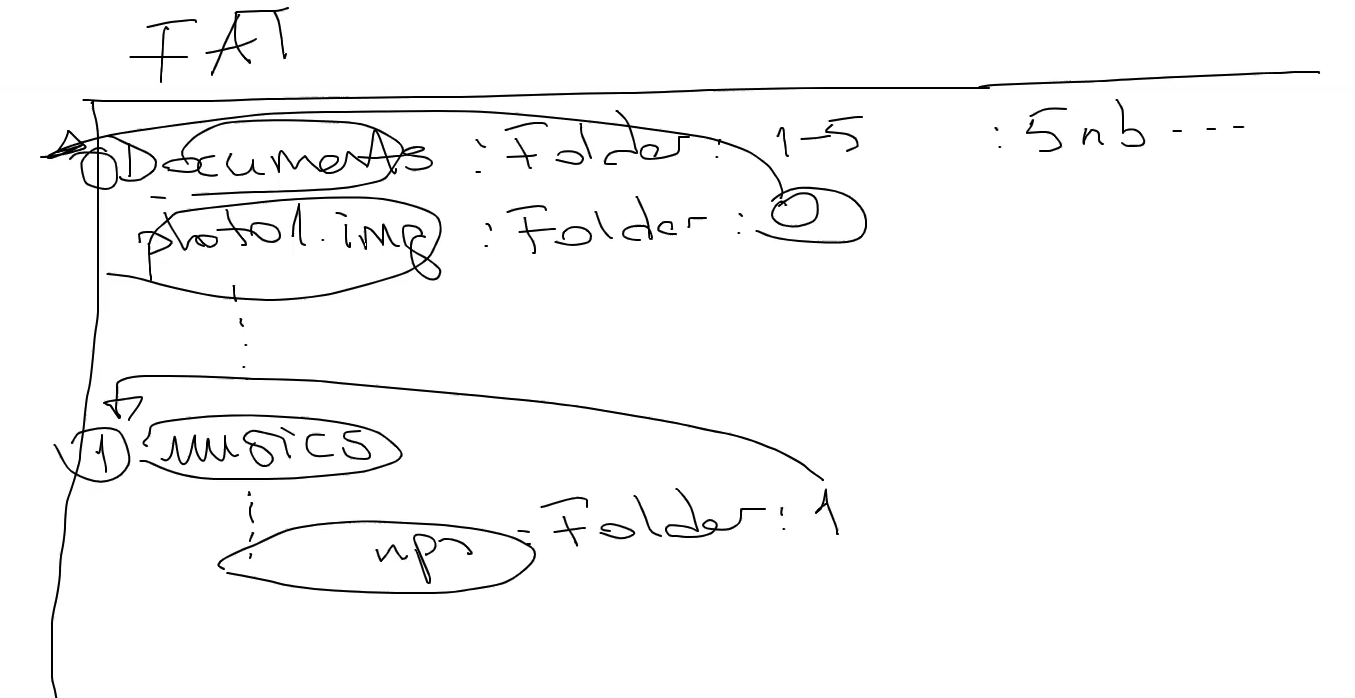 FAT
0 Documents : Folder : 1-5 : 5nb ---
photo1.img : Folder : 0
1 : musics
: Folder : 1